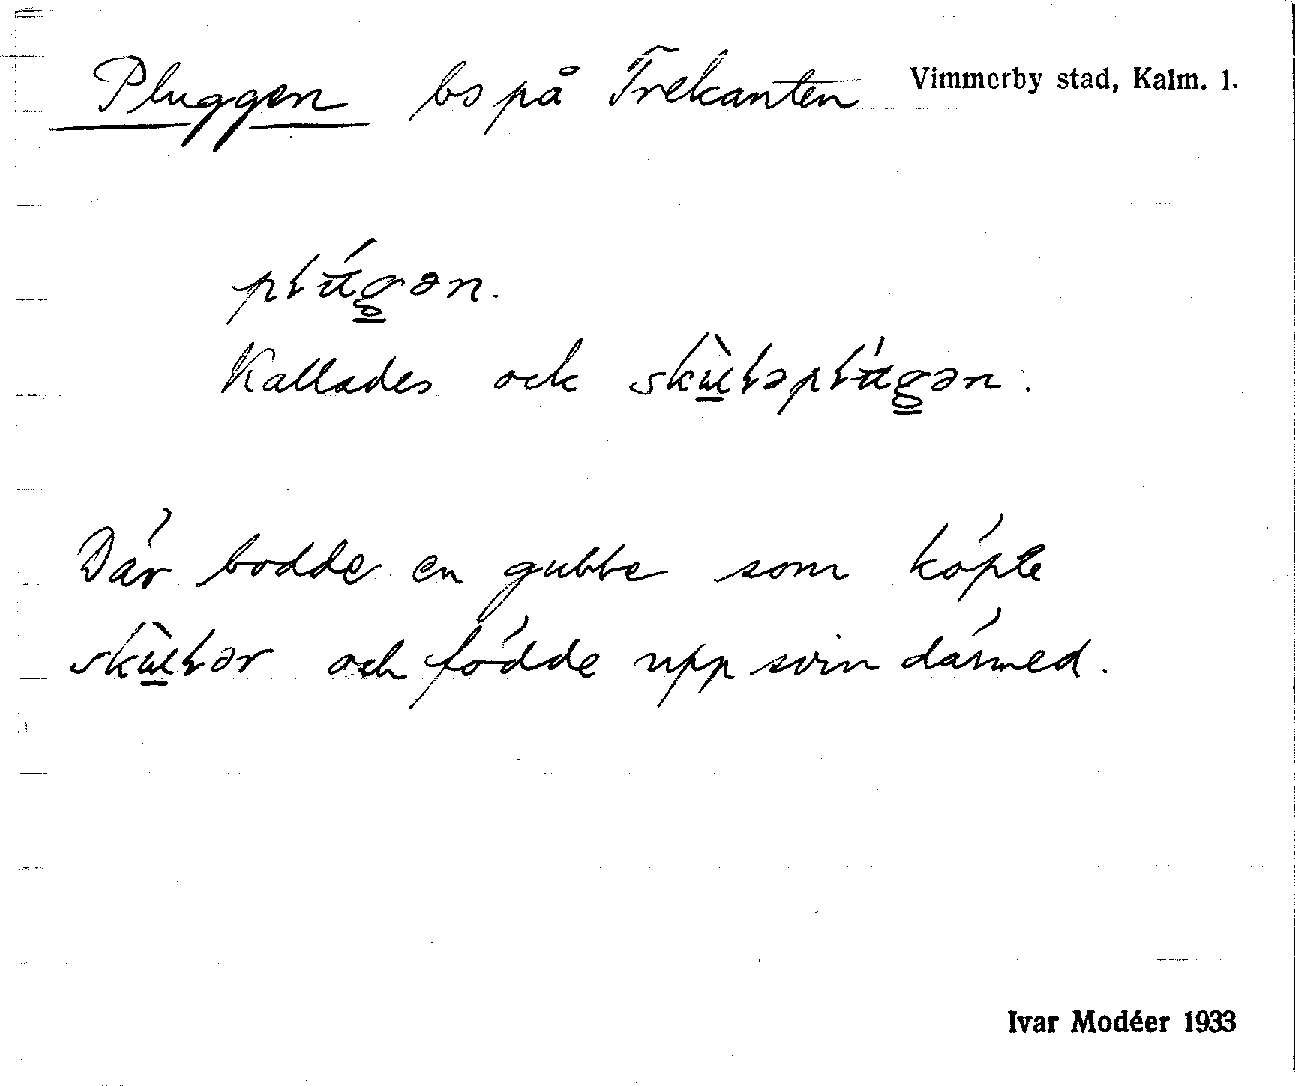 Pluggen bs på Trekanten Vimmerby stad, Kalm. l.
Kallades ock
Där bodde en gubbe som köpte
och födde upp svin därmed.
Ivar Modéer 1933